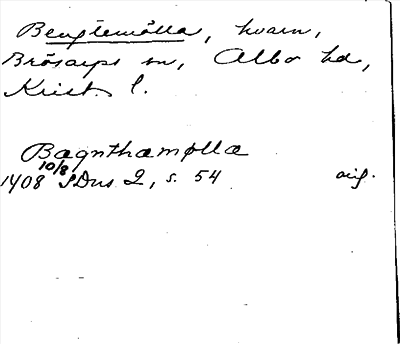 Bengtemölla, kvarn,
Brösarps sn, Albo hd,
Krist. l.
Bagnthamølla
1408 10/8 SDns 2, s. 54 orig.